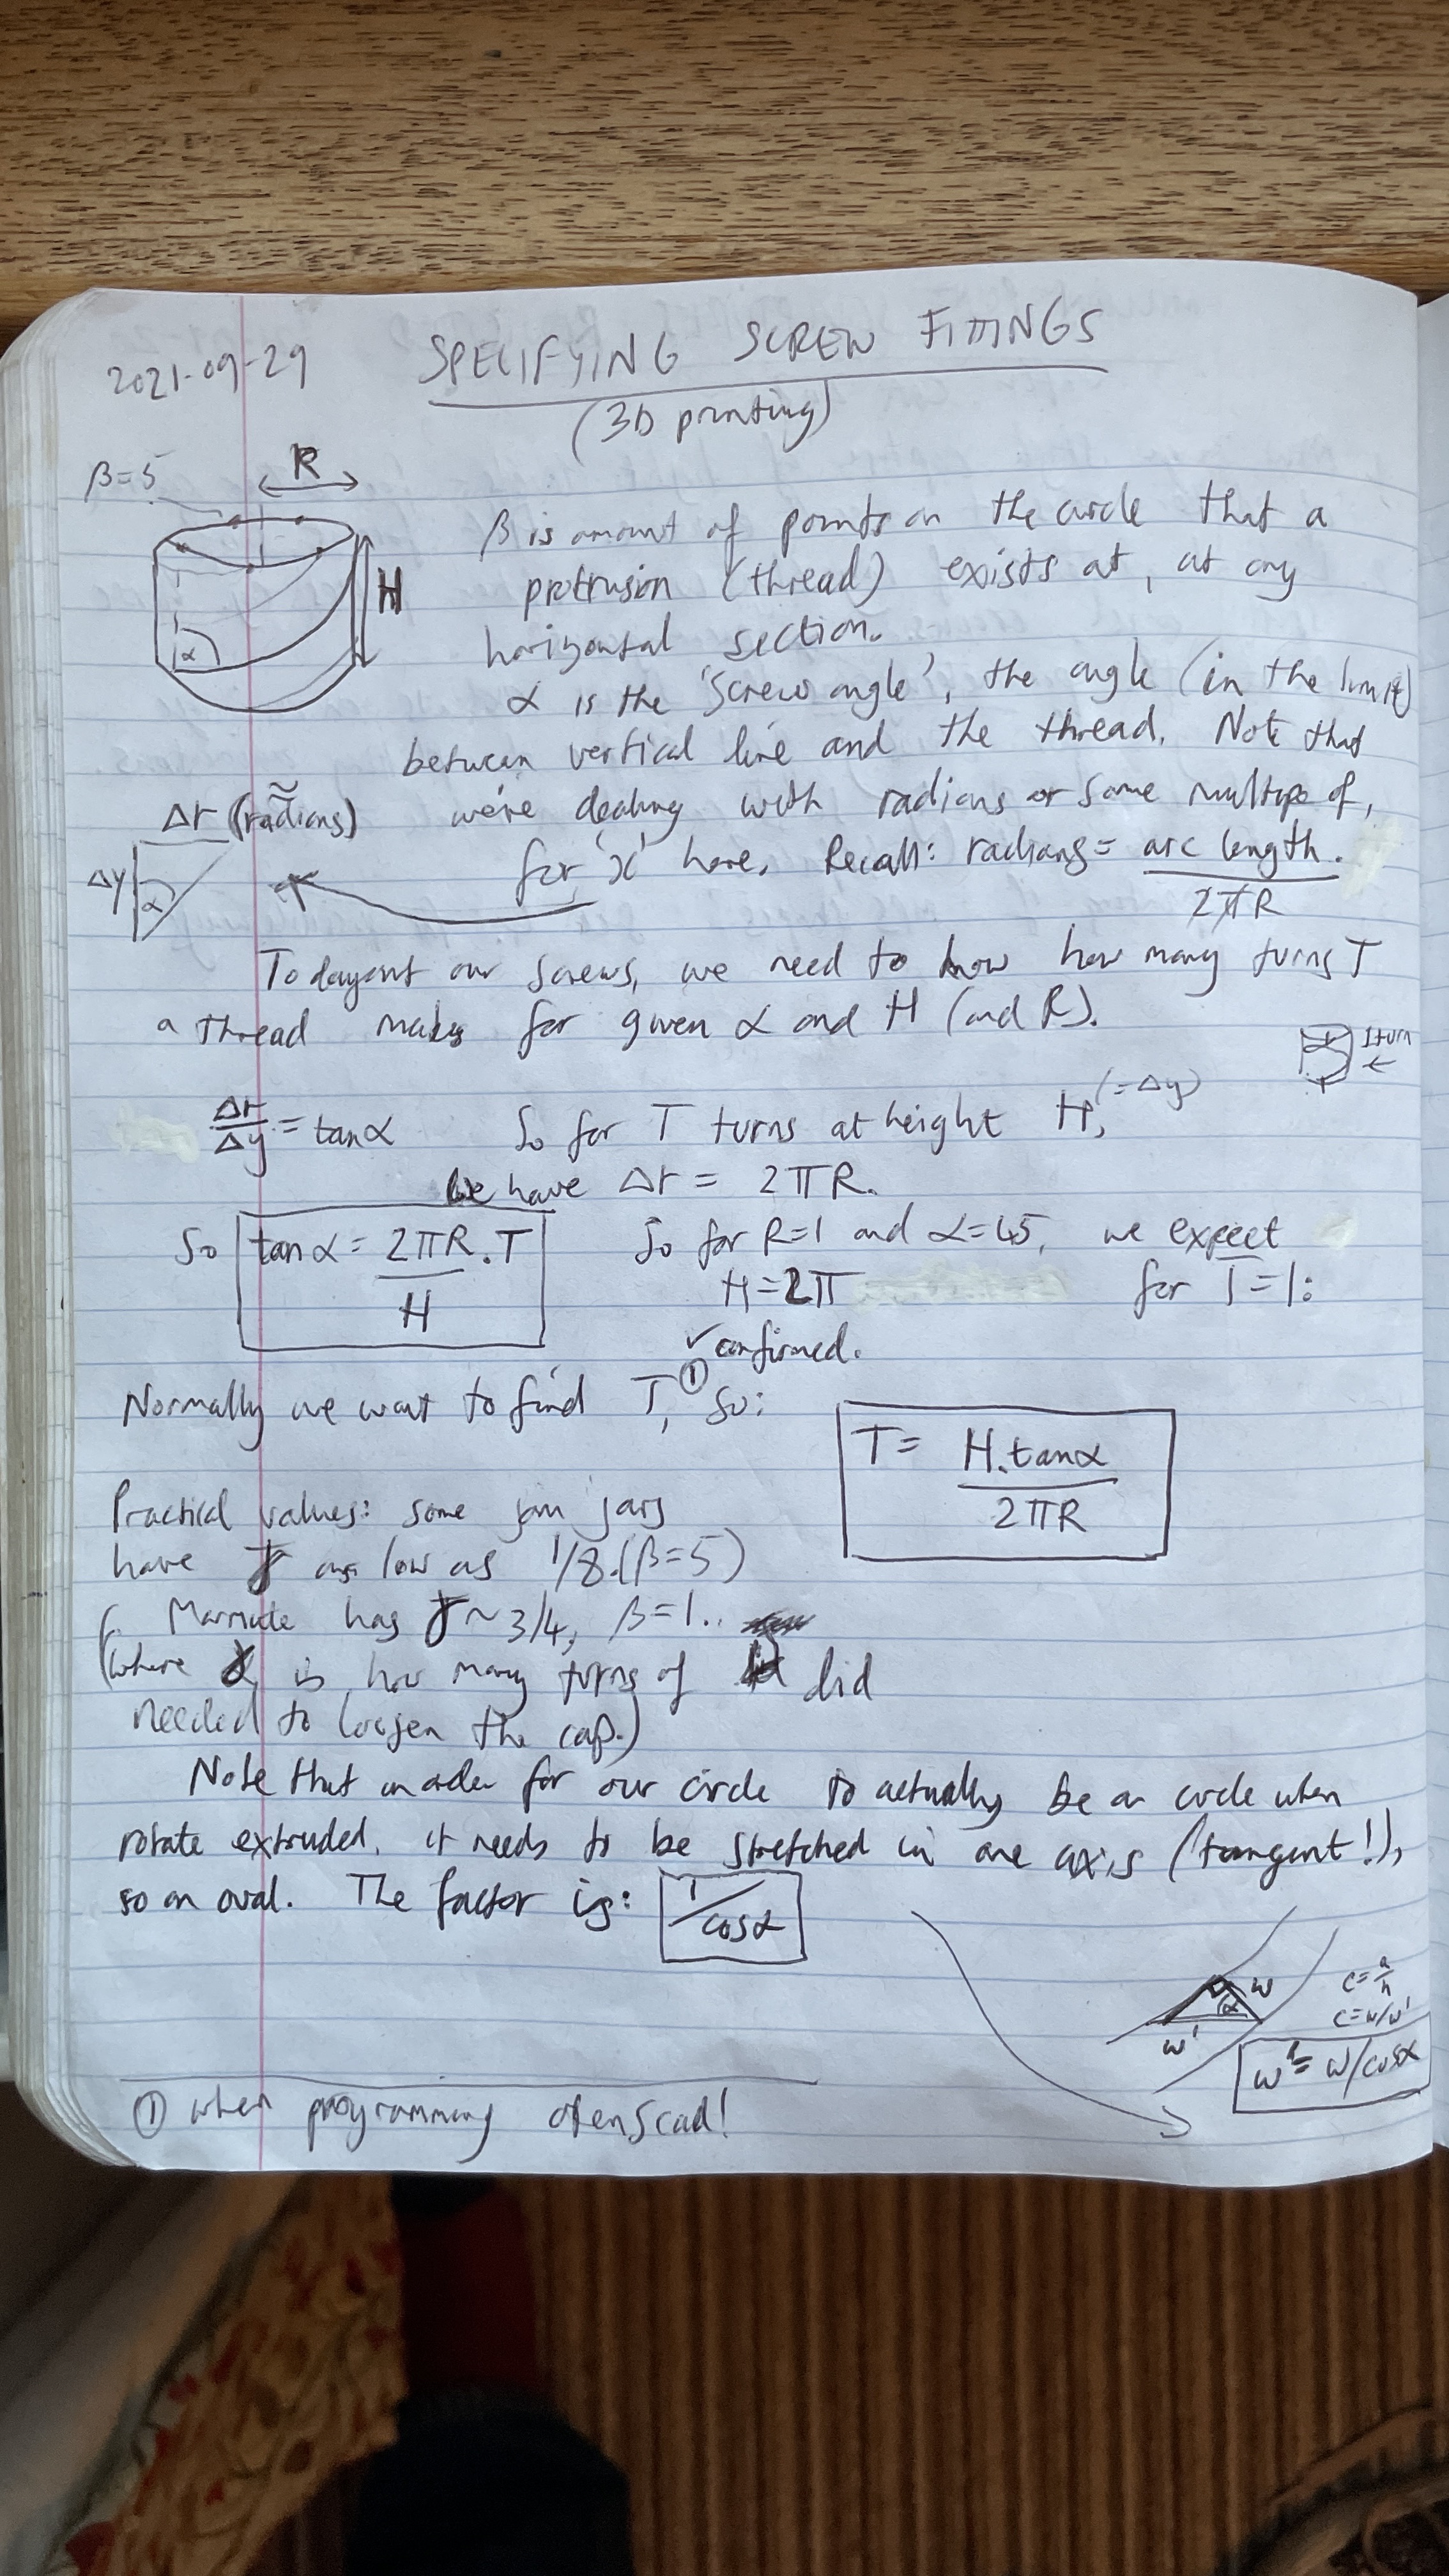 2021-09-29 SPECIFYING SCREW FITTINGS
(3D printing)
β=5 R
H
α
β is amount of points on the circle that a
protrusion (thread) exists at, at any
horizontal section.
α is the 'screw angle', the angle (in the limit)
between vertical line and the thread. Note that
we're dealing with radians or some multiple of,
for 'x' here. Recall: radians = arc length.
2πR
Δr (radians)
Δy α
To layout our screws, we need to know how many turns T
a thread makes for given α and H (and R).
1 turn
Δr/Δy = tanα So for T turns at height H, (=Δy)
we have Δr = 2πR.
So tanα = 2πR.T / H So for R=1 and α=45, we expect
H=2π for T=1:
✓ confirmed.
Normally we want to find T,① so:
T = H.tanα / 2πR
Practical values: some jam jars
have γ as low as 1/8.(β=5)
(Marmite has γ~3/4, β=1..
(where γ is how many turns of lid
needed to loosen the cap.)
Note that in order for our circle to actually be a circle when
rotate extruded, it needs to be stretched in one axis (tangent!),
so an oval. The factor is: 1/cosα
w α w'
c=a/h
c=w/w'
w'=w/cosα
① when programming openscad!